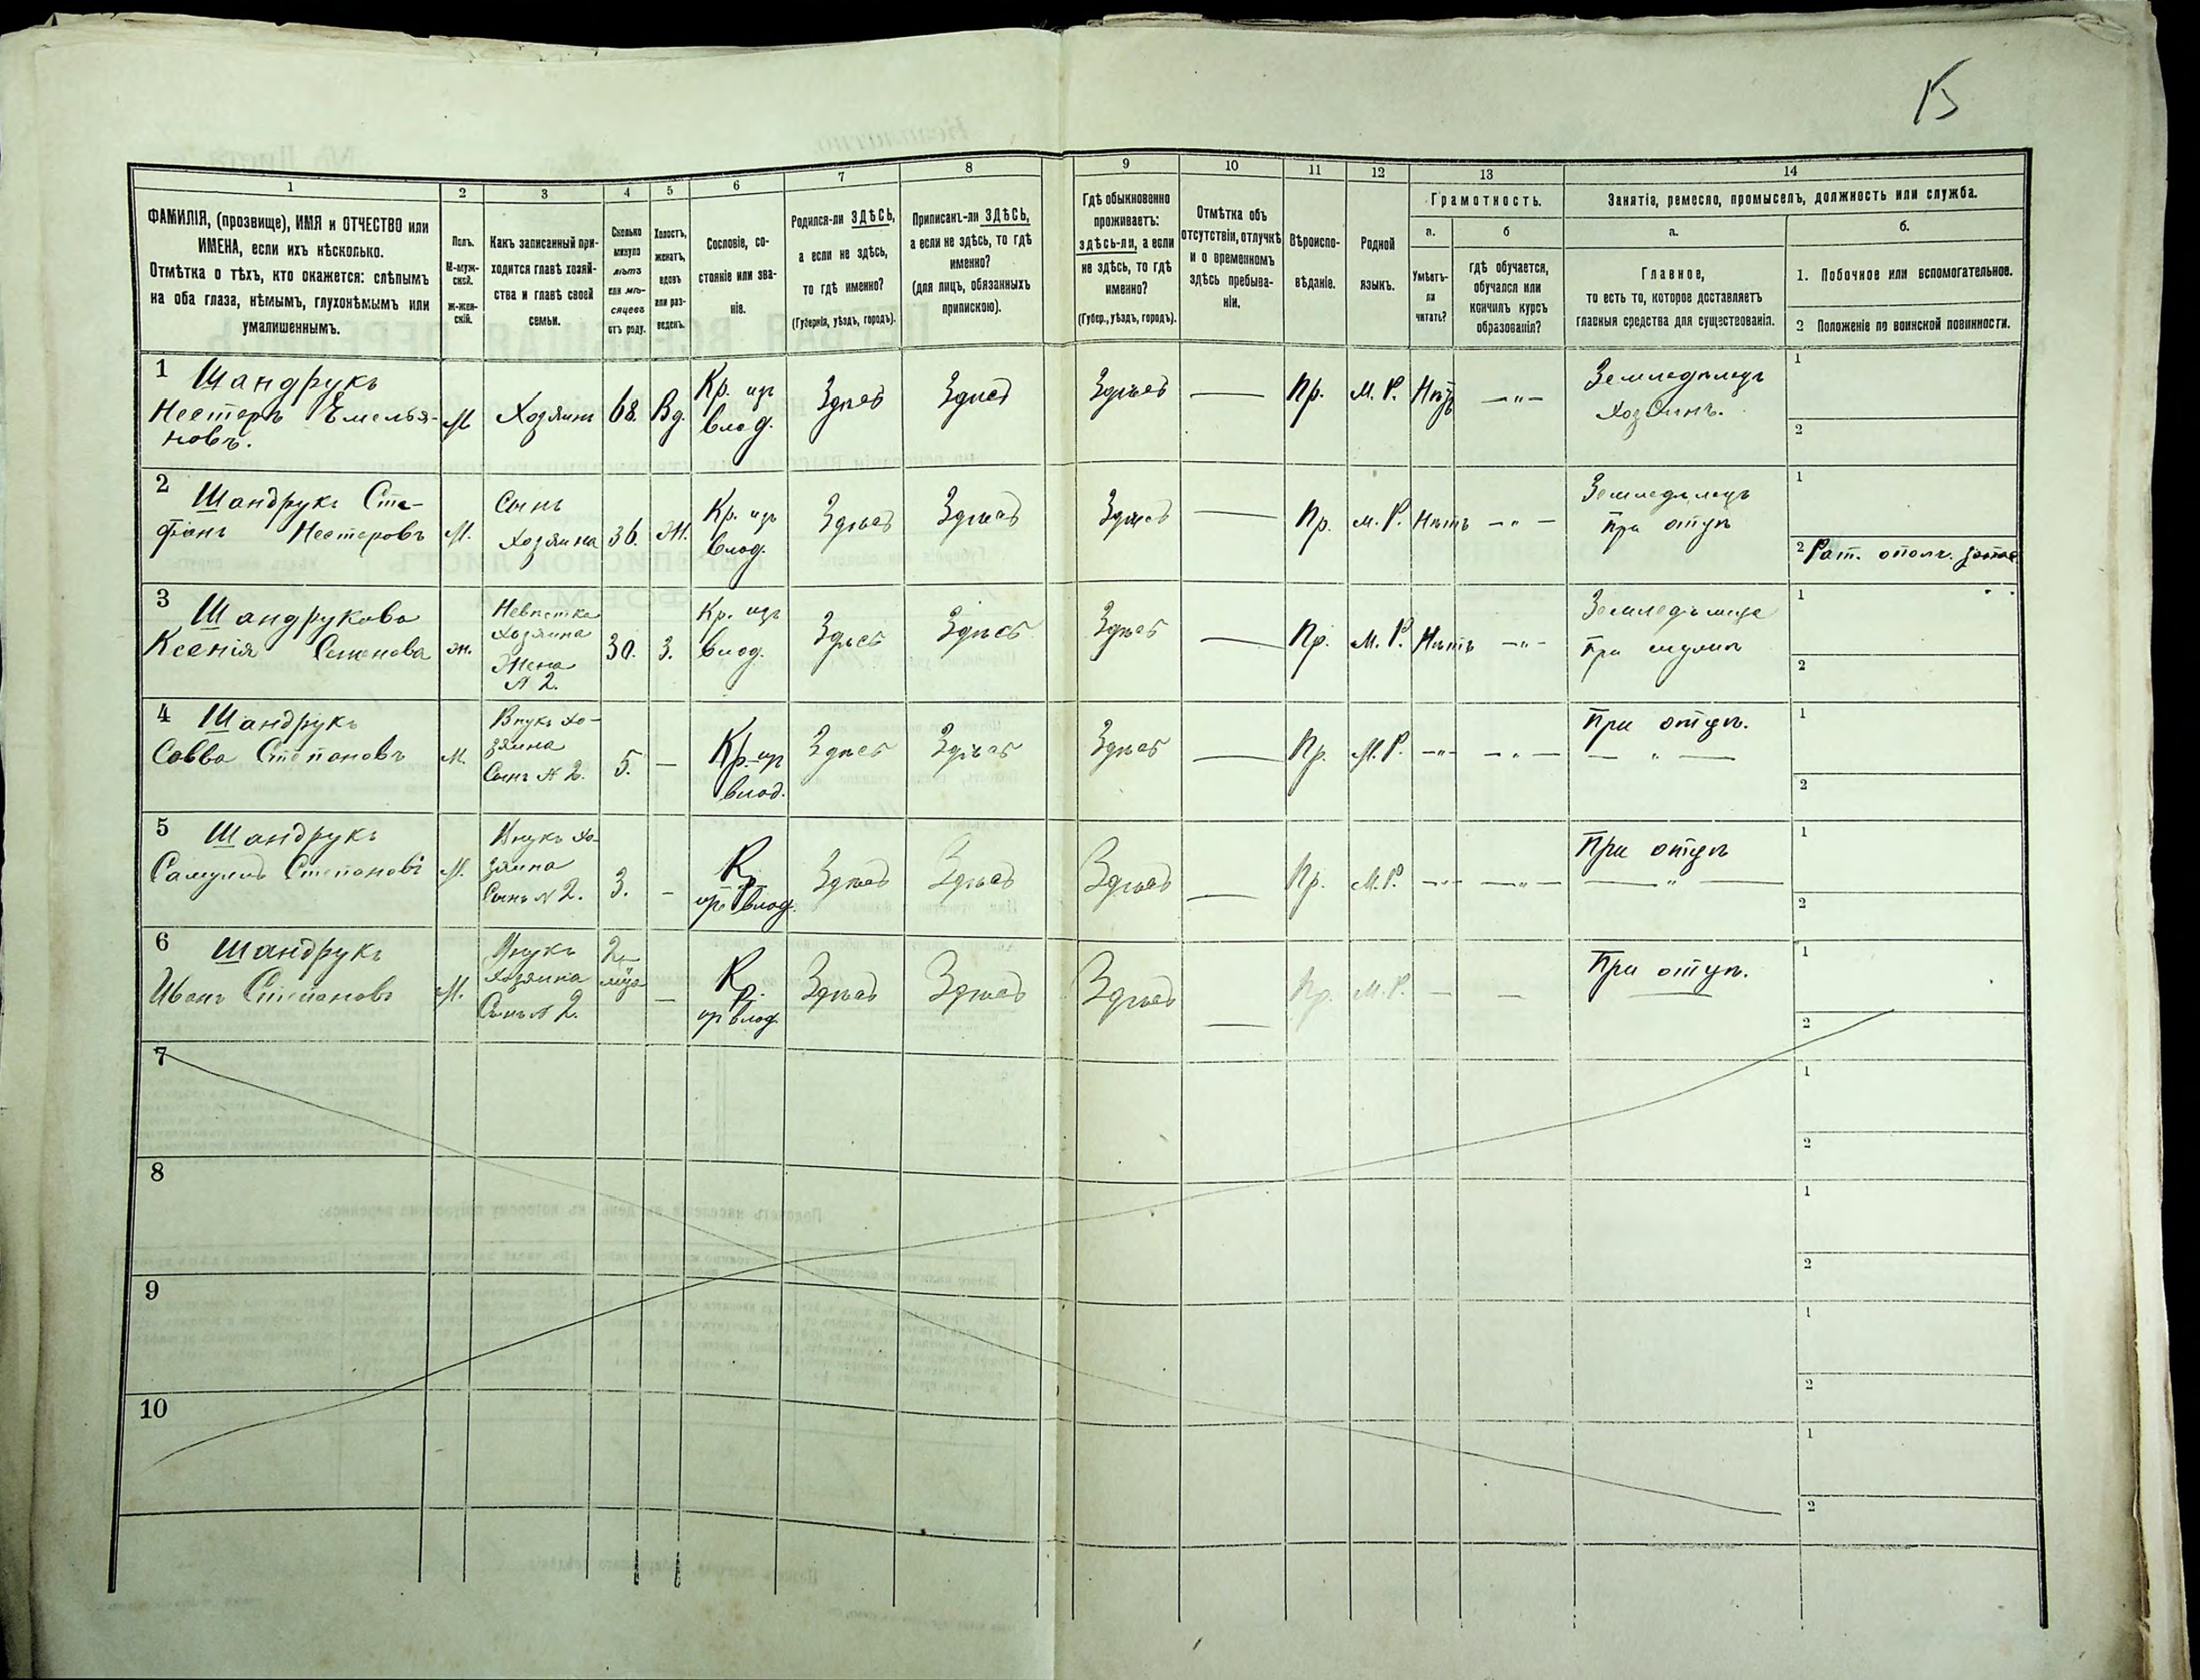 15
1
2
3
4
5
6
7
8
9
10
11
12
13
14
ФАМИЛІЯ, (прозвище), ИМЯ и ОТЧЕСТВО или
ИМЕНА, если ихъ нѣсколько.
Отмѣтка о тѣхъ, кто окажется: слѣпымъ
на оба глаза, нѣмымъ, глухонѣмымъ или
умалишеннымъ.
Полъ.
М-муж-
ской.
Ж-жен-
скій.
Какъ записанный при-
ходится главѣ хозяй-
ства и главѣ своей
семьи.
Сколько
минуло
лѣтъ
или мѣ-
сяцевъ
отъ роду.
Холостъ,
женатъ,
вдовъ
или раз-
веденъ.
Сословіе, со-
стояніе или зва-
ніе.
Родился-ли ЗДѢСЬ,
а если не здѣсь,
то гдѣ именно?
(Губернія, уѣздъ, городъ).
Приписанъ-ли ЗДѢСЬ,
а если не здѣсь, то гдѣ
именно?
(для лицъ, обязанныхъ
припискою).
Гдѣ обыкновенно
проживаетъ:
здѣсь-ли, а если
не здѣсь, то гдѣ
именно?
(Губер., уѣздъ, городъ).
Отмѣтка объ
отсутствіи, отлучкѣ
и о временномъ
здѣсь пребыва-
ніи.
Вѣроиспо-
вѣданіе.
Родной
языкъ.
Грамотность.
а.
Умѣетъ-
ли
читать?
б
гдѣ обучается,
обучался или
кончилъ курсъ
образованія?
Занятія, ремесло, промыселъ, должность или служба.
а.
Главное,
то есть то, которое доставляетъ
главныя средства для существованія.
б.
1. Побочное или вспомогательное.
2 Положеніе по воинской повинности.
1 Шандрукъ
Нестеръ Емелья-
новъ.
М
Хозяинъ
68.
Вд.
Кр. изъ
влад.
Здѣсь
Здѣсь
Здѣсь
—
Пр.
М. Р.
Нѣтъ
— " —
Земледѣлецъ
Хозяинъ.
1
2
2 Шандрукъ Сте-
фанъ Нестеровъ
М.
Сынъ
Хозяина
36.
Ж.
Кр. изъ
влад.
Здѣсь
Здѣсь
Здѣсь
—
Пр.
М. Р.
Нѣтъ
— " —
Земледѣлецъ
при отцѣ
1
2 Рат. ополч.
3 Шандрукова
Ксенія Семенова
ж.
Невѣстка
хозяина
Жена
№ 2.
30.
З.
Кр. изъ
влад.
Здѣсь
Здѣсь
Здѣсь
—
Пр.
М. Р.
Нѣтъ
— " —
при мужѣ
1
2
4 Шандрукъ
Савва Степановъ
М.
Внукъ хо-
зяина
Сынъ № 2.
5.
—
Кр. из
влад.
Здѣсь
Здѣсь
Здѣсь
—
Пр.
М. Р.
— " —
— " —
При отцѣ.
— " —
1
2
5 Шандрукъ
Самуилъ Степановъ
М.
Внукъ хо-
зяина
Сынъ № 2.
3.
—
Кр.
из влад.
Здѣсь
Здѣсь
Здѣсь
—
Пр.
М. Р.
— " —
— " —
При отцѣ
— " —
1
2
6 Шандрукъ
Иванъ Степановъ
М.
Внукъ
хозяина
Сынъ № 2.
—
Кр.
из влад.
Здѣсь
Здѣсь
Здѣсь
—
Пр.
М. Р.
—
—
При отцѣ.
1
2
7
1
2
8
1
2
9
1
2
10
1
2